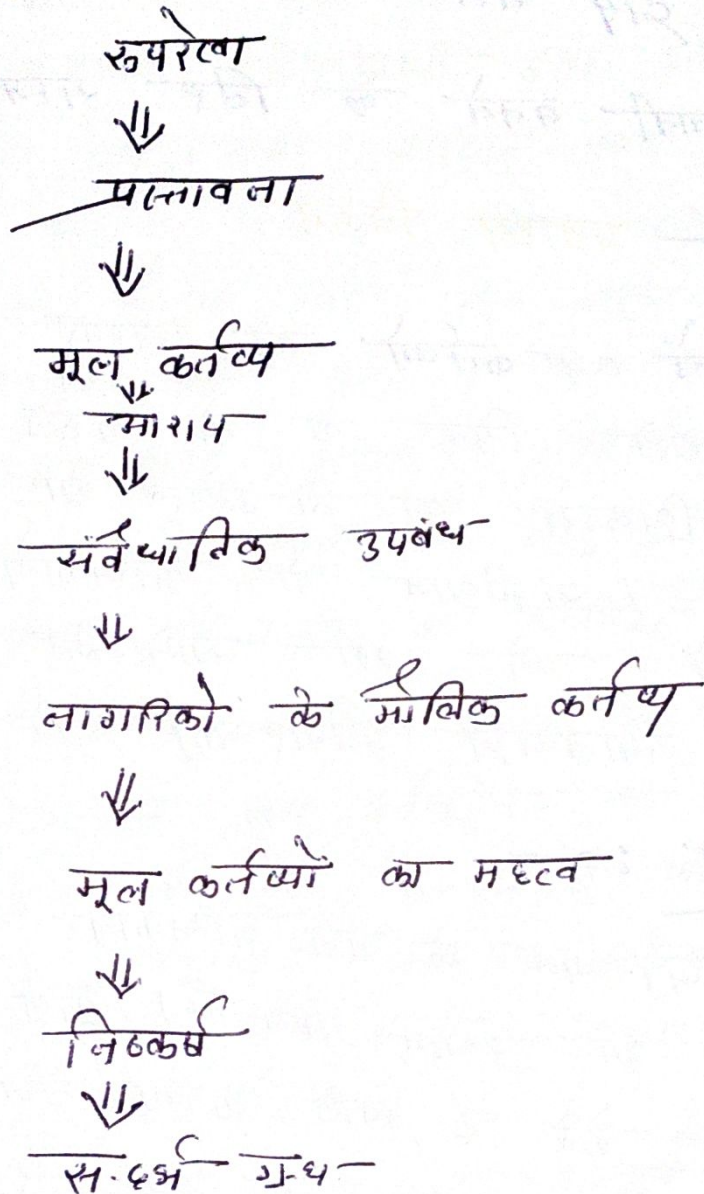 रूपरेखा
⇓
प्रस्तावना
⇓
मूल कर्तव्य
⇓
आशय
⇓
संवैधानिक उपबंध
⇓
नागरिको के मौलिक कर्तव्य
⇓
मूल कर्तव्यों का महत्व
⇓
निष्कर्ष
⇓
सन्दर्भ ग्रन्थ